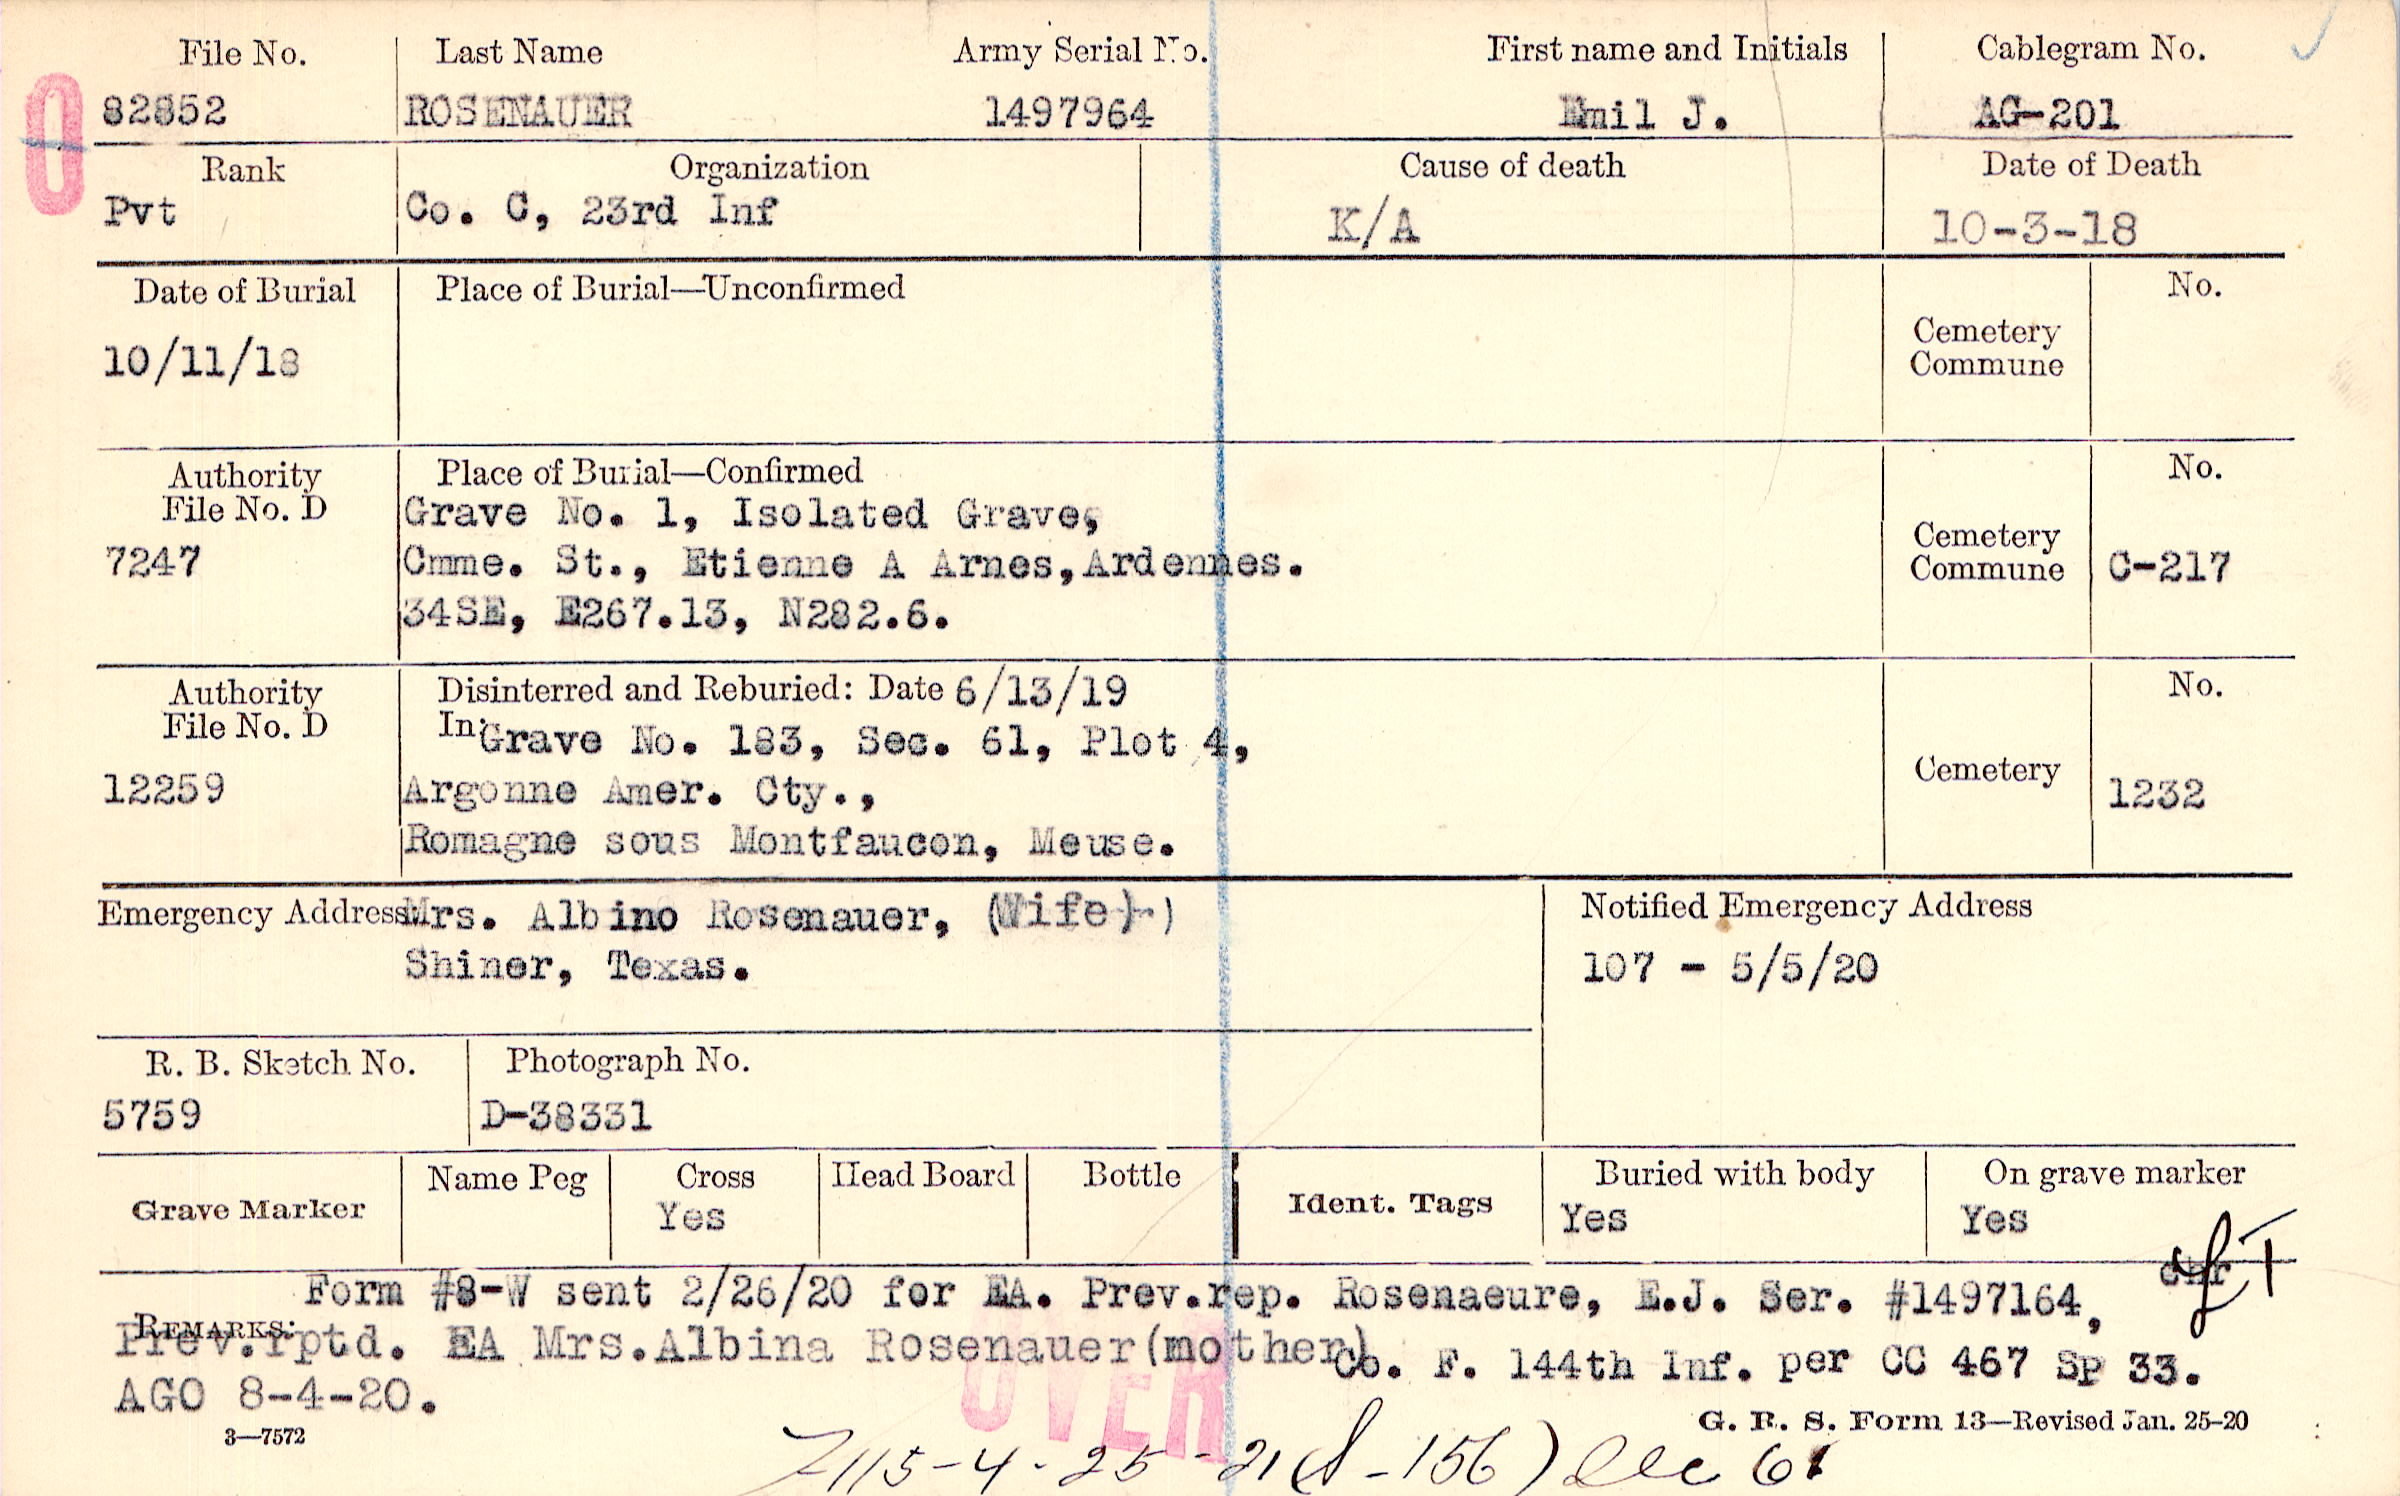 File No. Last Name Army Serial No. First name and Initials Cablegram No.
82852 ROSENAUER 1497964 Emil J. AG-201
Rank Organization Cause of death Date of Death
Pvt Co. C, 23rd Inf K/A 10-3-18
Date of Burial Place of Burial—Unconfirmed No.
10/11/18 Cemetery
Commune
Authority Place of Burial—Confirmed No.
File No. D Grave No. 1, Isolated Grave,
7247 Cmme. St., Etienne A Arnes,Ardennes. Cemetery
Commune C-217
34SE, E267.13, N282.6.
Authority Disinterred and Reburied: Date 6/13/19 No.
File No. D In: Grave No. 183, Sec. 61, Plot 4,
12259 Argonne Amer. Cty., Cemetery 1232
Romagne sous Montfaucon, Meuse.
Emergency Address Mrs. Albino Rosenauer, (Wife) Notified Emergency Address
Shiner, Texas. 107 - 5/5/20
R. B. Sketch No. Photograph No.
5759 D-38331
Grave Marker Name Peg Cross Head Board Bottle Ident. Tags Buried with body On grave marker
Yes Yes Yes
Form #8-W sent 2/26/20 for EA. Prev.rep. Rosenaeure, E.J. Ser. #1497164,
REMARKS:
Prev.rptd. EA Mrs.Albina Rosenauer(mother) Co. F. 144th Inf. per CC 467 Sp 33.
AGO 8-4-20.
OVER
3—7572 G. R. S. Form 13—Revised Jan. 25-20
115-4-25-21 (S-156)